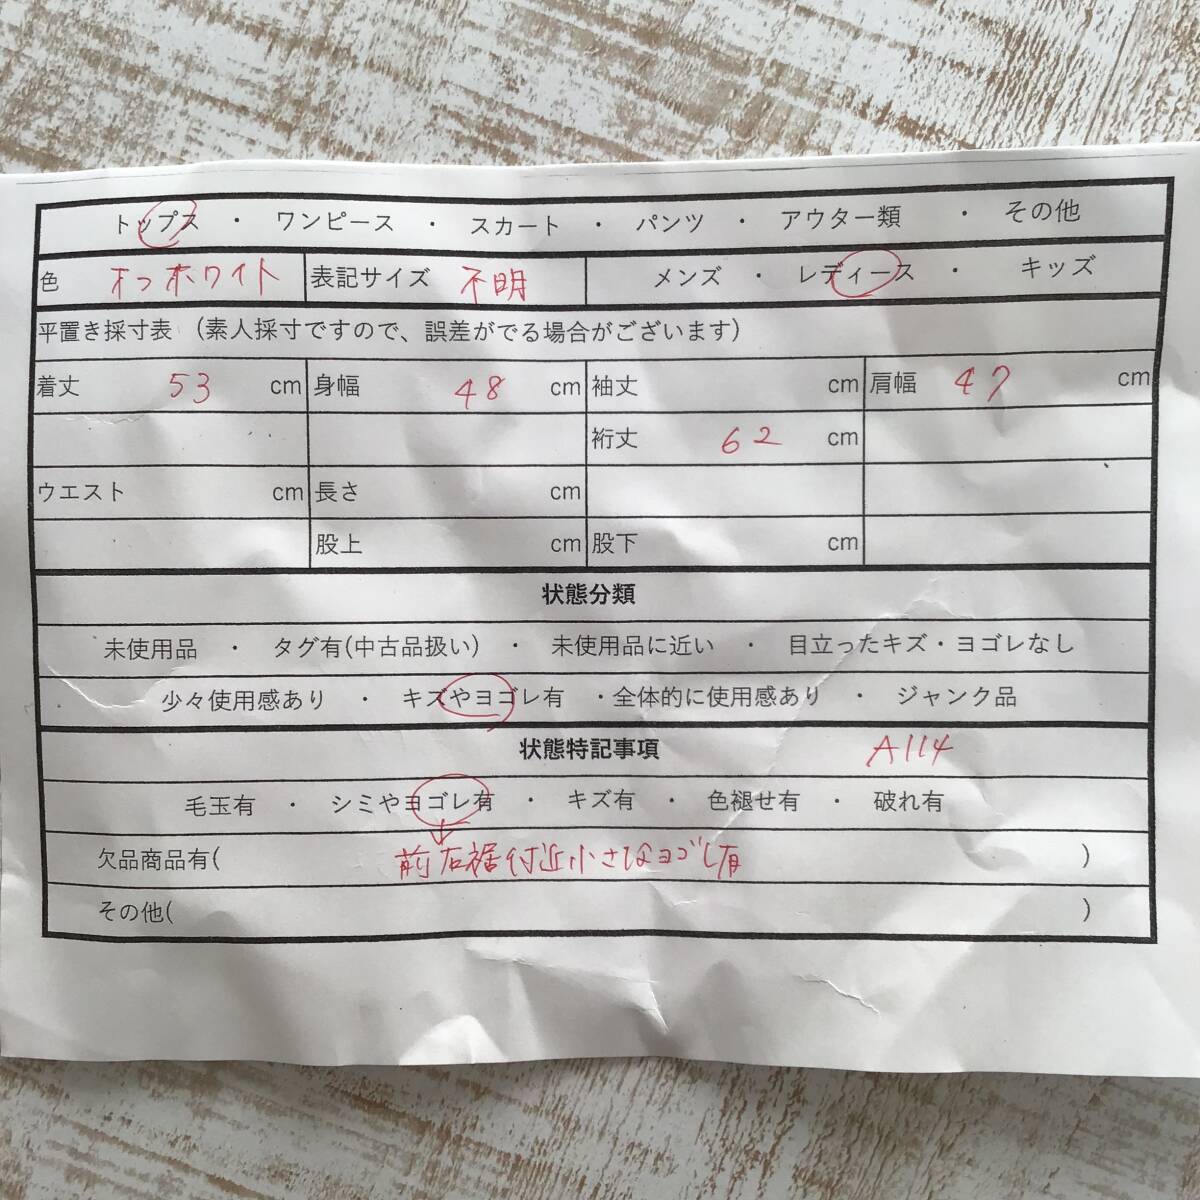 トップス ・ ワンピース ・ スカート ・ パンツ ・ アウター類 ・ その他
色 オフホワイト 表記サイズ 不明 メンズ ・ レディース ・ キッズ
平置き採寸表 （素人採寸ですので、誤差がでる場合がございます）
着丈 53 cm 身幅 48 cm 袖丈 cm 肩幅 47 cm
裄丈 62 cm
ウエスト cm 長さ cm
股上 cm 股下 cm
状態分類
未使用品 ・ タグ有(中古品扱い) ・ 未使用品に近い ・ 目立ったキズ・ヨゴレなし
少々使用感あり ・ キズやヨゴレ有 ・全体的に使用感あり ・ ジャンク品
状態特記事項 A114
毛玉有 ・ シミやヨゴレ有 ・ キズ有 ・ 色褪せ有 ・ 破れ有
欠品商品有( 前右裾付近小さなヨゴレ有 )
その他( )